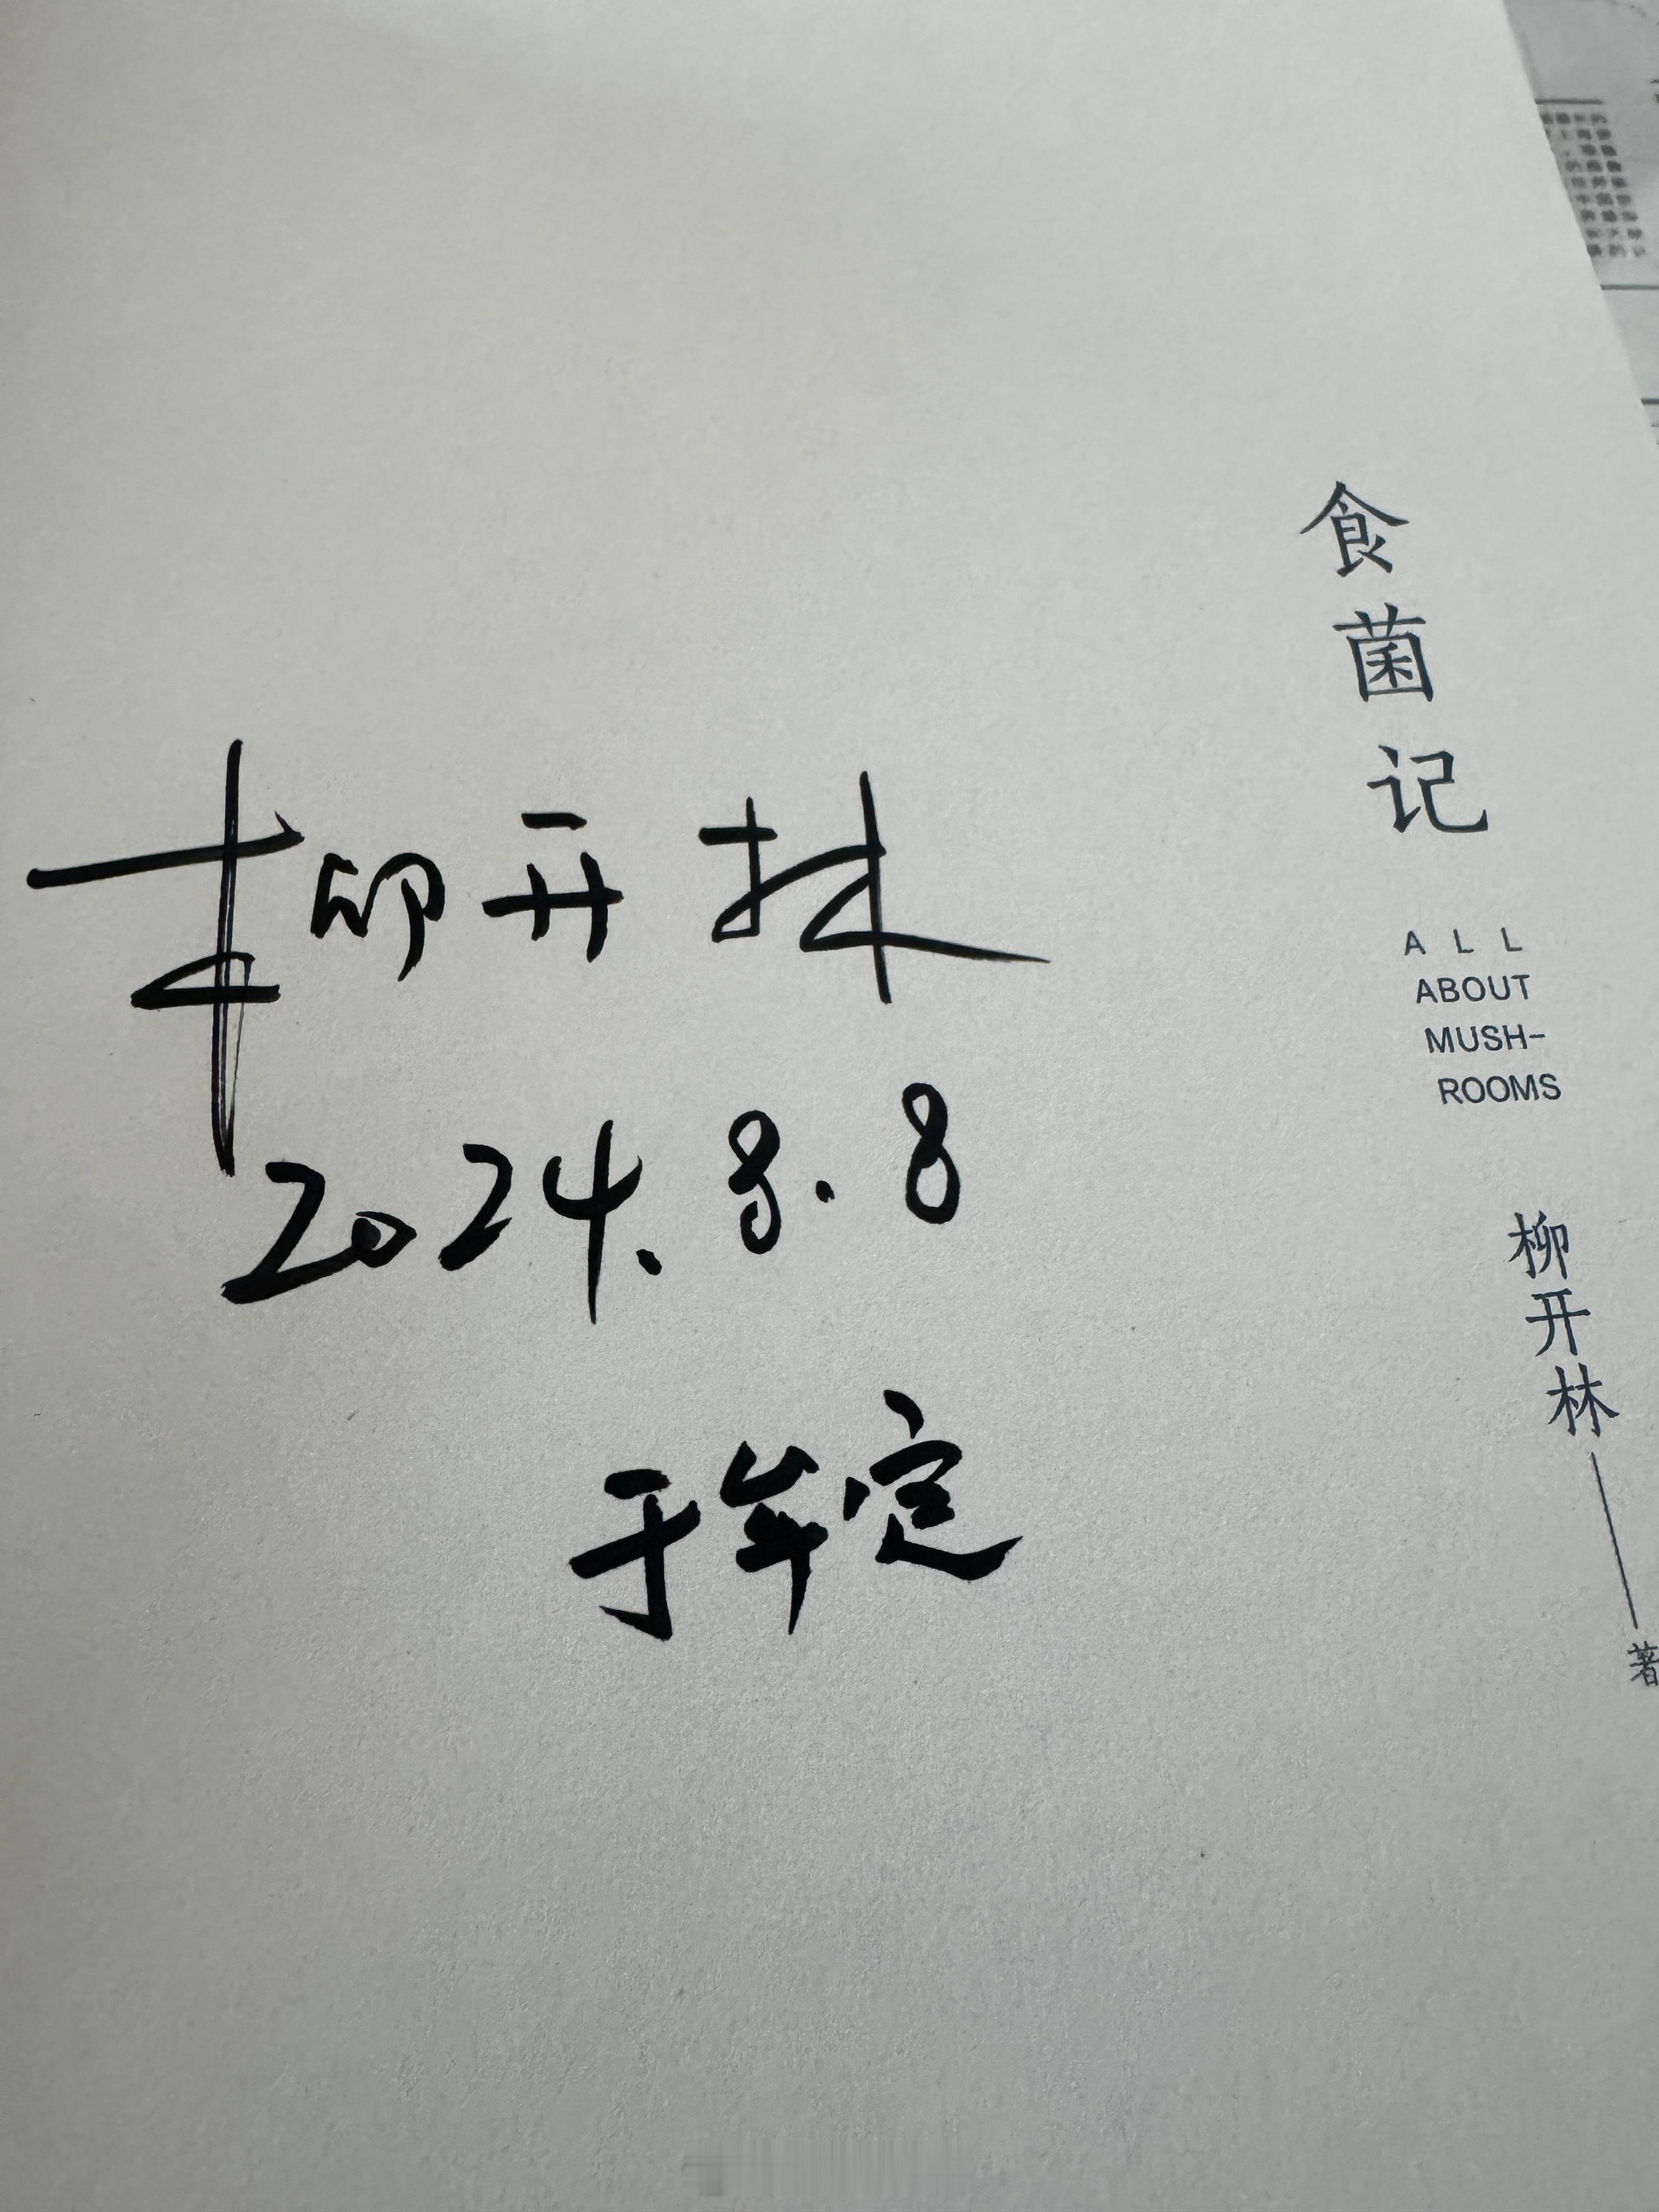 柳开林
2024.8.8
于牟定
食菌记
ALL
ABOUT
MUSH-
ROOMS
柳开林——著